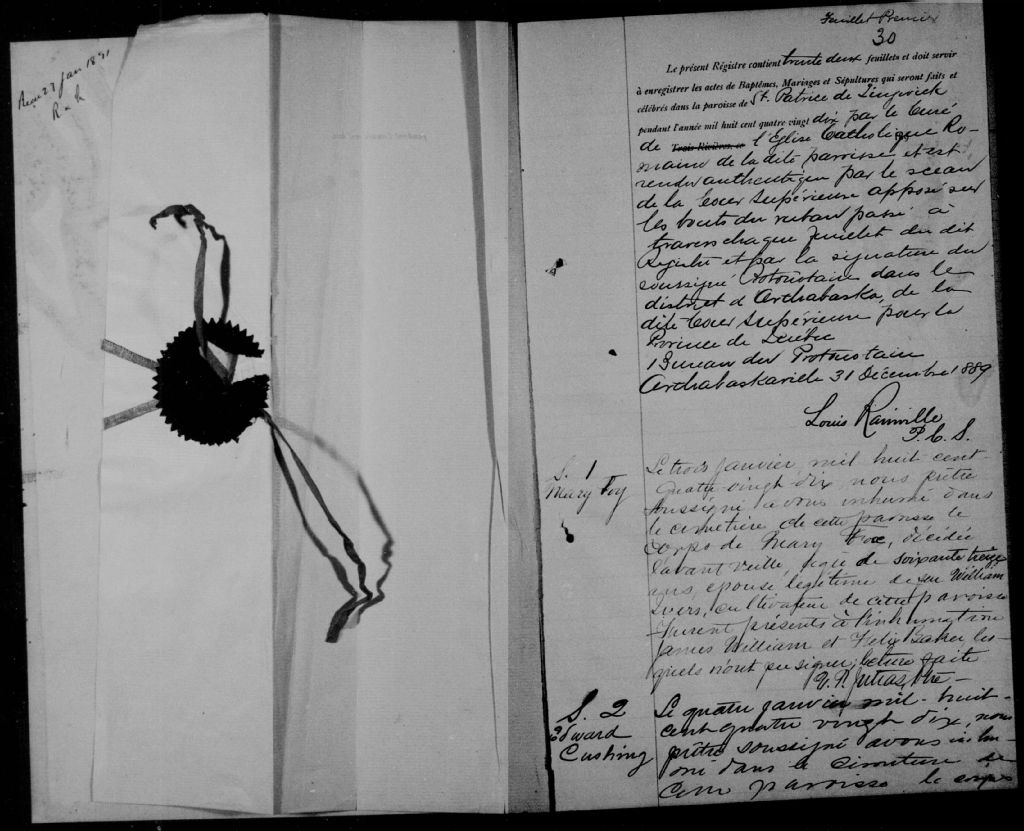 Recu 27 Jan 1891
R & R
Feuillet Premier
30
Le présent Régistre contient trente deux feuillets et doit servir
à enregistrer les actes de Baptêmes, Mariages et Sépultures qui seront faits et
célébrés dans la paroisse de St. Patrice de Tingwick
pendant l'année mil huit cent quatre vingt dix par le Curé
de Trois-Rivières, ce l'Eglise Catholique Ro-
maine de la dite paroisse et est
rendu authentique par le sceau
de la Cour Supérieure apposé sur
les bouts du ruban passé à
travers chaque feuillet du dit
Registre et par la signature du
soussigné Protonotaire dans le
district d'Arthabaska, de la
dite Cour Supérieure pour la
Province de Québec
Bureau du Protonotaire
Arthabaskaville 31 Décembre 1889
Louis Rainville
P. C. S.
S. 1
Mary Foy
Le trois janvier mil huit cent
quatre-vingt-dix nous prêtre
soussigné avons inhumé dans
le cimetière de cette paroisse le
corps de Mary décédée
l'avant veille, agée de soixante treize
ans, épouse légitime de feu William
Ivers, cultivateur de cette paroisse
Furent présents à l'inhumation
James William et Felix Baker les-
quels n'ont pu signer, lecture faite
P. Jutras, Ptre
S. 2
Edward
Cushing
Le quatre janvier mil-huit-
cent quatre vingt dix, nous
prêtre soussigné avons inhu-
mé dans le cimetière de
cette paroisse le corps